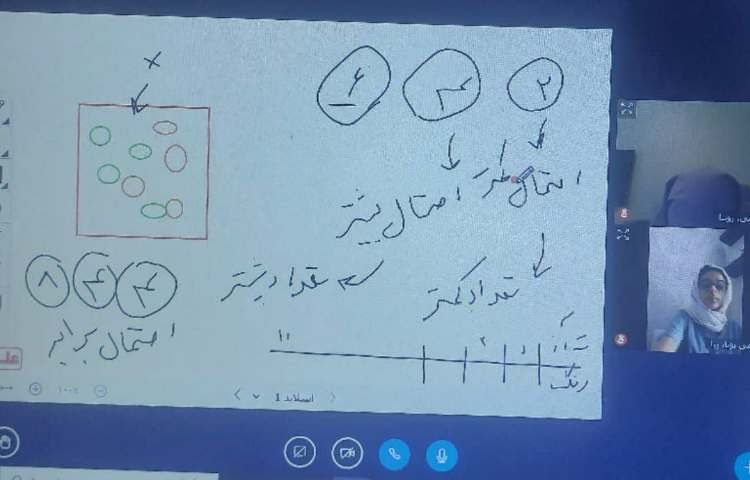 ۲ ۴ ۶
احتمال کمتر
احتمال بیشتر
تعداد کمتر
تعداد بیشتر
۴ ۴ ۸
احتمال برابر
۱۰ ۲ ۱
رنگ
اسلاید 1
۱۰۰٪